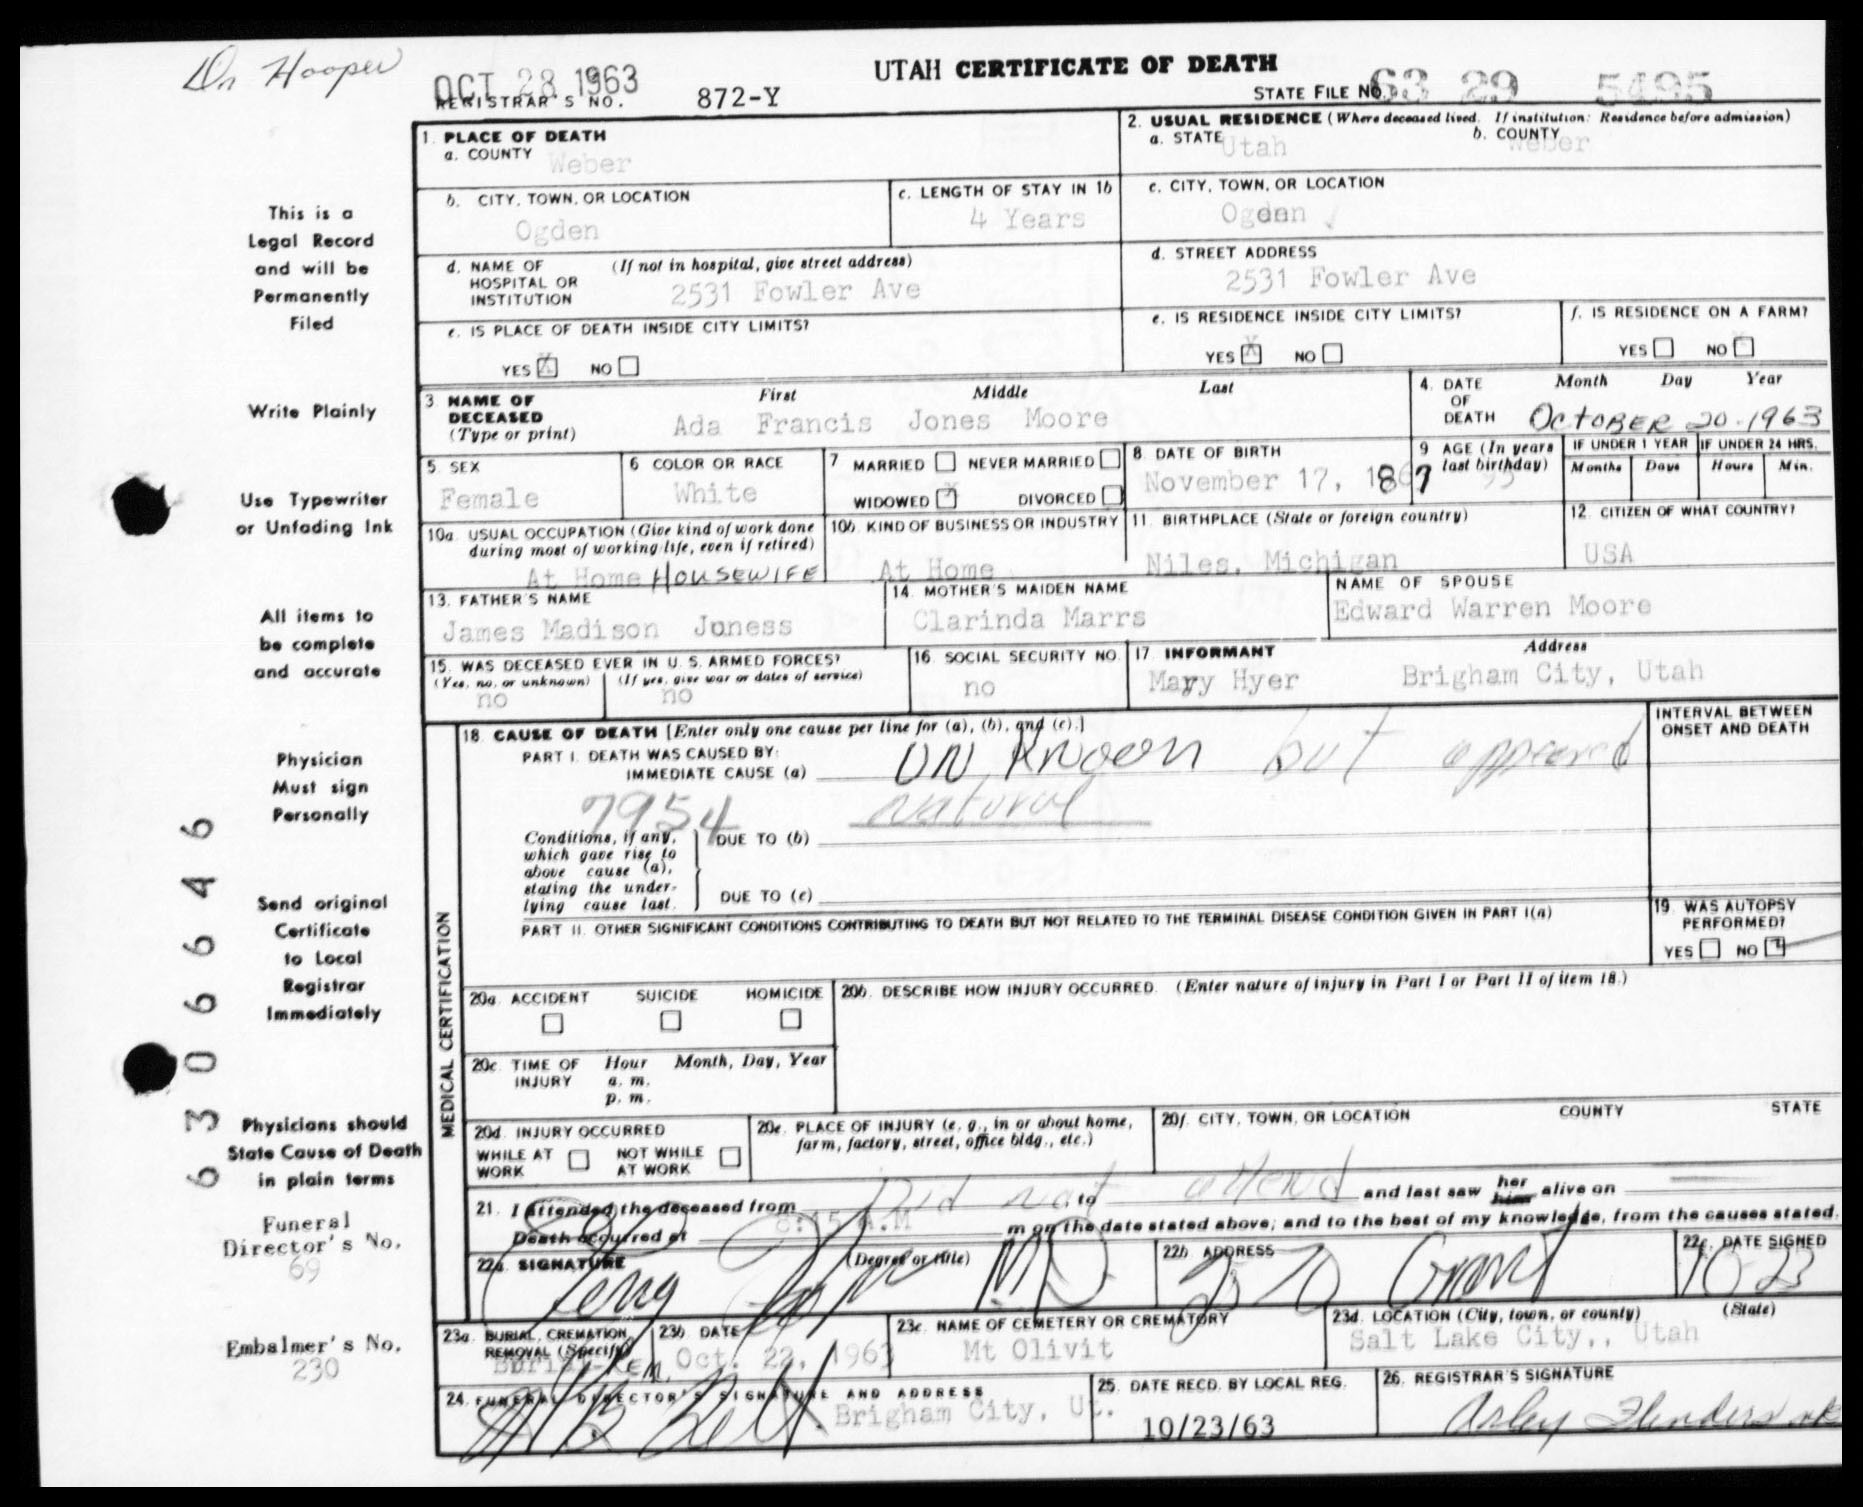 Dr Hooper
OCT 28 1963
UTAH CERTIFICATE OF DEATH
REGISTRAR'S NO. 872-Y
STATE FILE NO. 63 29 5495
1. PLACE OF DEATH
a. COUNTY Weber
2. USUAL RESIDENCE (Where deceased lived. If institution: Residence before admission)
a. STATE Utah b. COUNTY Weber
b. CITY, TOWN, OR LOCATION Ogden
c. LENGTH OF STAY IN 1b 4 Years
c. CITY, TOWN, OR LOCATION Ogden
d. NAME OF HOSPITAL OR INSTITUTION (If not in hospital, give street address) 2531 Fowler Ave
d. STREET ADDRESS 2531 Fowler Ave
e. IS PLACE OF DEATH INSIDE CITY LIMITS?
YES X NO
e. IS RESIDENCE INSIDE CITY LIMITS?
YES X NO
f. IS RESIDENCE ON A FARM?
YES NO X
3 NAME OF DECEASED (Type or print)
First Middle Last
Ada Francis Jones Moore
4. DATE OF DEATH
Month Day Year
OCTOBER 20-1963
5. SEX Female
6 COLOR OR RACE White
7 MARRIED NEVER MARRIED
WIDOWED X DIVORCED
8. DATE OF BIRTH
November 17, 1867
9 AGE (In years last birthday)
IF UNDER 1 YEAR IF UNDER 24 HRS.
Months Days Hours Min.
10a. USUAL OCCUPATION (Give kind of work done during most of working life, even if retired)
At Home HOUSEWIFE
10b. KIND OF BUSINESS OR INDUSTRY
At Home
11. BIRTHPLACE (State or foreign country)
Niles, Michigan
12. CITIZEN OF WHAT COUNTRY?
USA
13. FATHER'S NAME
James Madison Juness
14. MOTHER'S MAIDEN NAME
Clarinda Marrs
NAME OF SPOUSE
Edward Warren Moore
15. WAS DECEASED EVER IN U.S. ARMED FORCES?
(Yes, no, or unknown) (If yes, give war or dates of service)
no no
16. SOCIAL SECURITY NO.
no
17. INFORMANT Address
Mary Hyer Brigham City, Utah
MEDICAL CERTIFICATION
18. CAUSE OF DEATH [Enter only one cause per line for (a), (b), and (c).]
INTERVAL BETWEEN ONSET AND DEATH
PART I. DEATH WAS CAUSED BY:
IMMEDIATE CAUSE (a) UN Knoon but appeared
7954 natural
Conditions, if any, which gave rise to above cause (a), stating the underlying cause last.
DUE TO (b)
DUE TO (c)
PART II. OTHER SIGNIFICANT CONDITIONS CONTRIBUTING TO DEATH BUT NOT RELATED TO THE TERMINAL DISEASE CONDITION GIVEN IN PART I(a)
19. WAS AUTOPSY PERFORMED?
YES NO
20a. ACCIDENT SUICIDE HOMICIDE
20b. DESCRIBE HOW INJURY OCCURRED. (Enter nature of injury in Part I or Part II of item 18.)
20c. TIME OF INJURY
Hour Month, Day, Year
a. m.
p. m.
20d. INJURY OCCURRED
WHILE AT WORK NOT WHILE AT WORK
20e. PLACE OF INJURY (e. g., in or about home, farm, factory, street, office bldg., etc.)
20f. CITY, TOWN, OR LOCATION COUNTY STATE
21. I attended the deceased from Did not to attend and last saw her him alive on
Death occurred at 8:15 A.M m on the date stated above; and to the best of my knowledge, from the causes stated.
22a. SIGNATURE (Degree or title) MD
22b. ADDRESS 2570 Grant
22c. DATE SIGNED 10-23
23a. BURIAL, CREMATION, REMOVAL (Specify) Burial-Rem.
23b. DATE Oct. 22, 1963
23c. NAME OF CEMETERY OR CREMATORY Mt Olivit
23d. LOCATION (City, town, or county) (State)
Salt Lake City,, Utah
24. FUNERAL DIRECTOR'S SIGNATURE AND ADDRESS
Brigham City, Ut.
25. DATE RECD. BY LOCAL REG.
10/23/63
26. REGISTRAR'S SIGNATURE
This is a
Legal Record
and will be
Permanently
Filed
Write Plainly
Use Typewriter
or Unfading Ink
All items to
be complete
and accurate
Physician
Must sign
Personally
Send original
Certificate
to Local
Registrar
Immediately
Physicians should
State Cause of Death
in plain terms
Funeral
Director's No.
69
Embalmer's No.
230
63066646